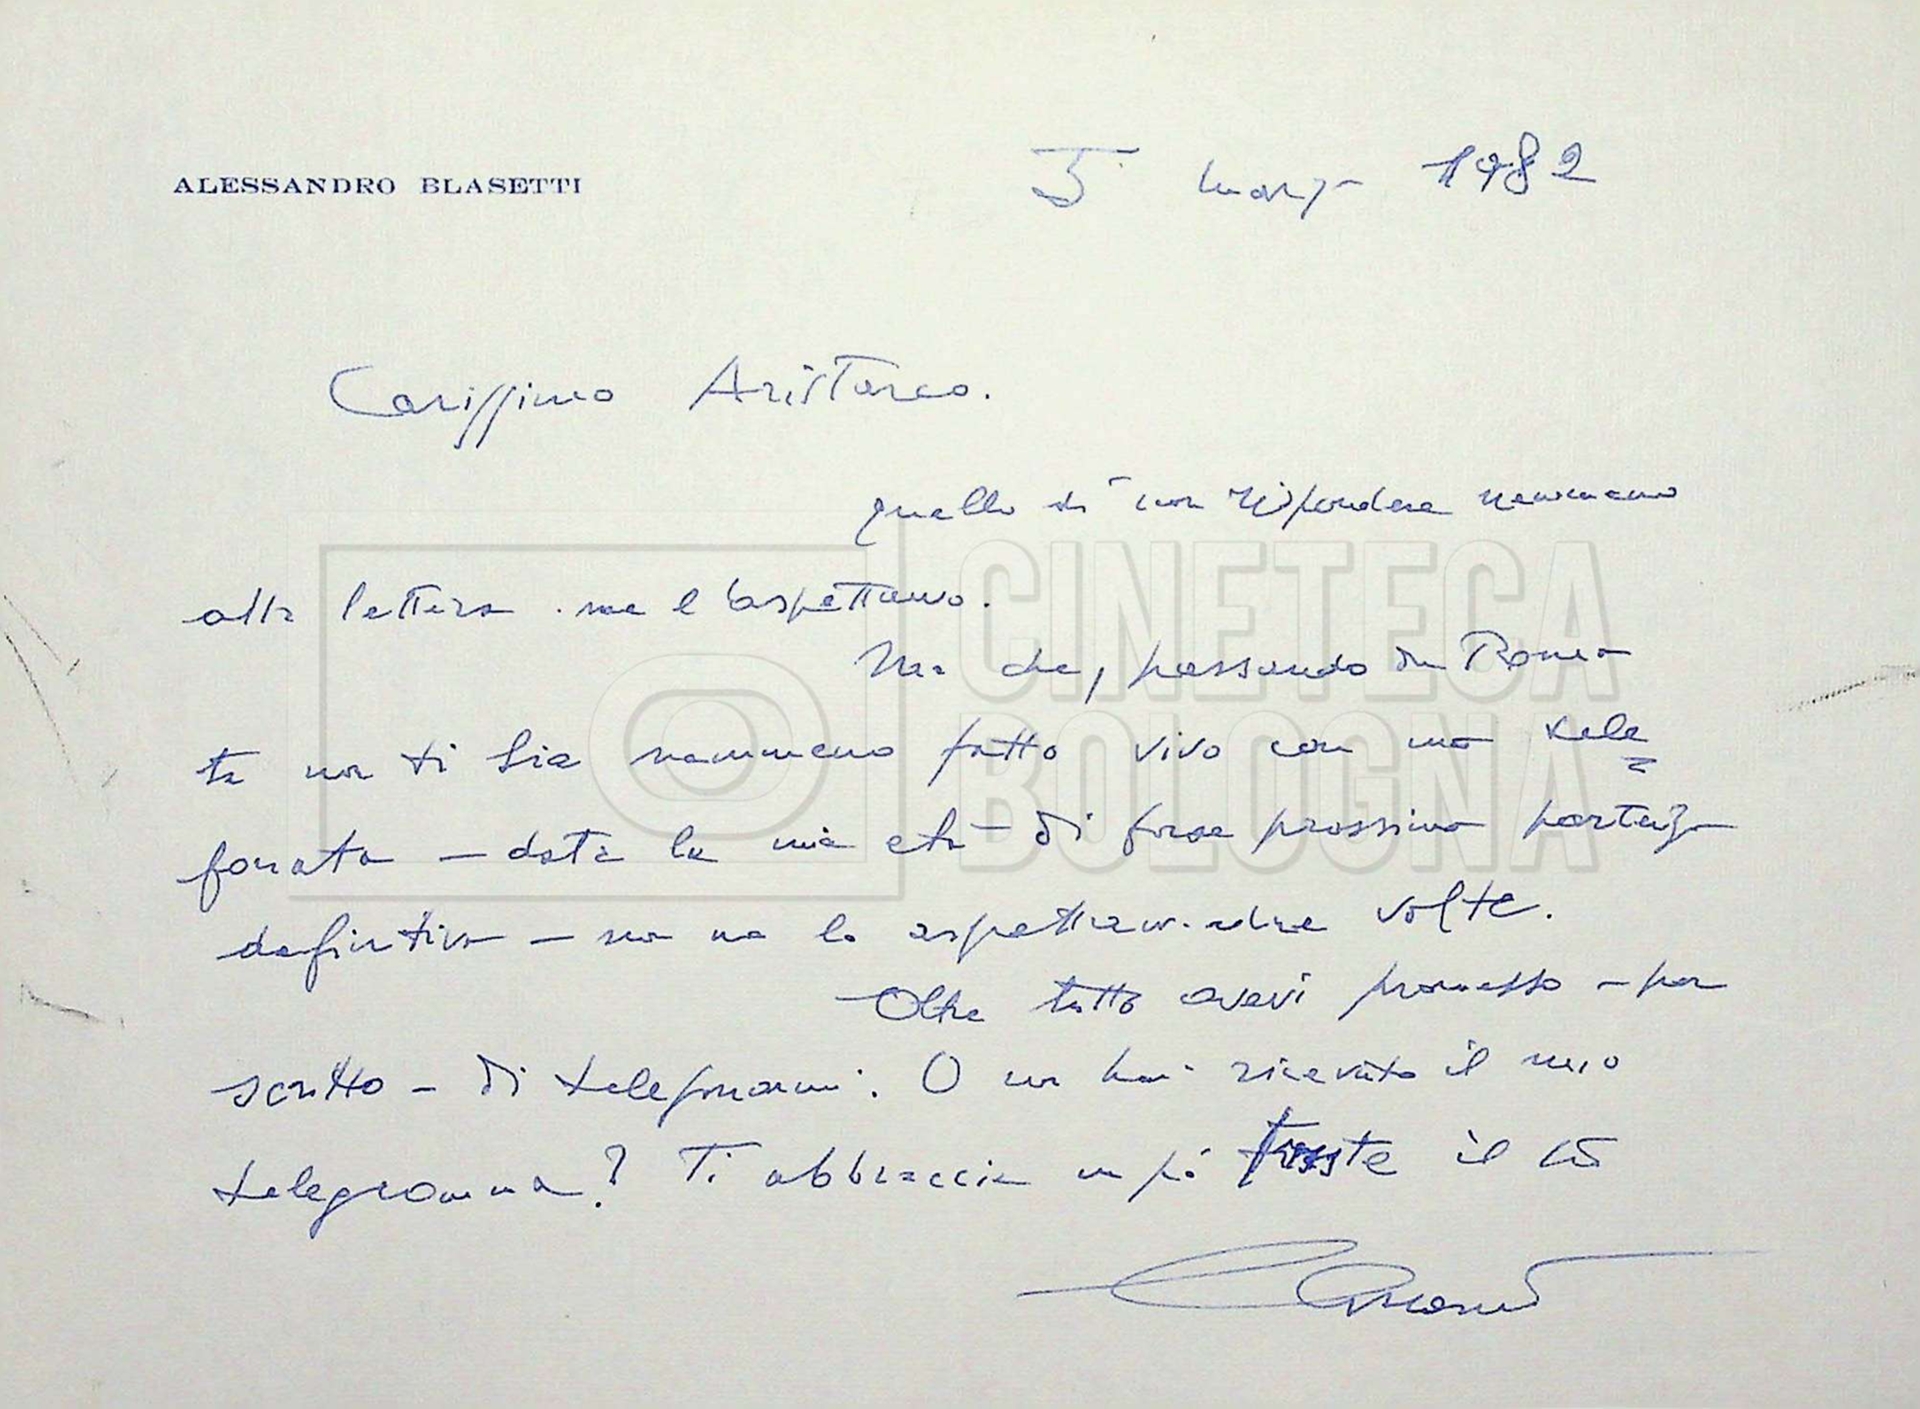 ALESSANDRO BLASETTI
5 marzo 1982
Carissimo Aristarco.
quello di non rispondere nemmeno
alla lettera me l'aspettavo.
Ma che, passando da Roma
tu non ti sia nemmeno fatto vivo con una tele
fonata – data la mia età di forse prossima partenza
definitiva – non me lo aspettavo. volte.
Oltre tutto avevi promesso – per
scritto – di telefonarmi. O non hai ricevuto il mio
telegramma? Ti abbraccia un pó triste il tuo
CINETECA
BOLOGNA